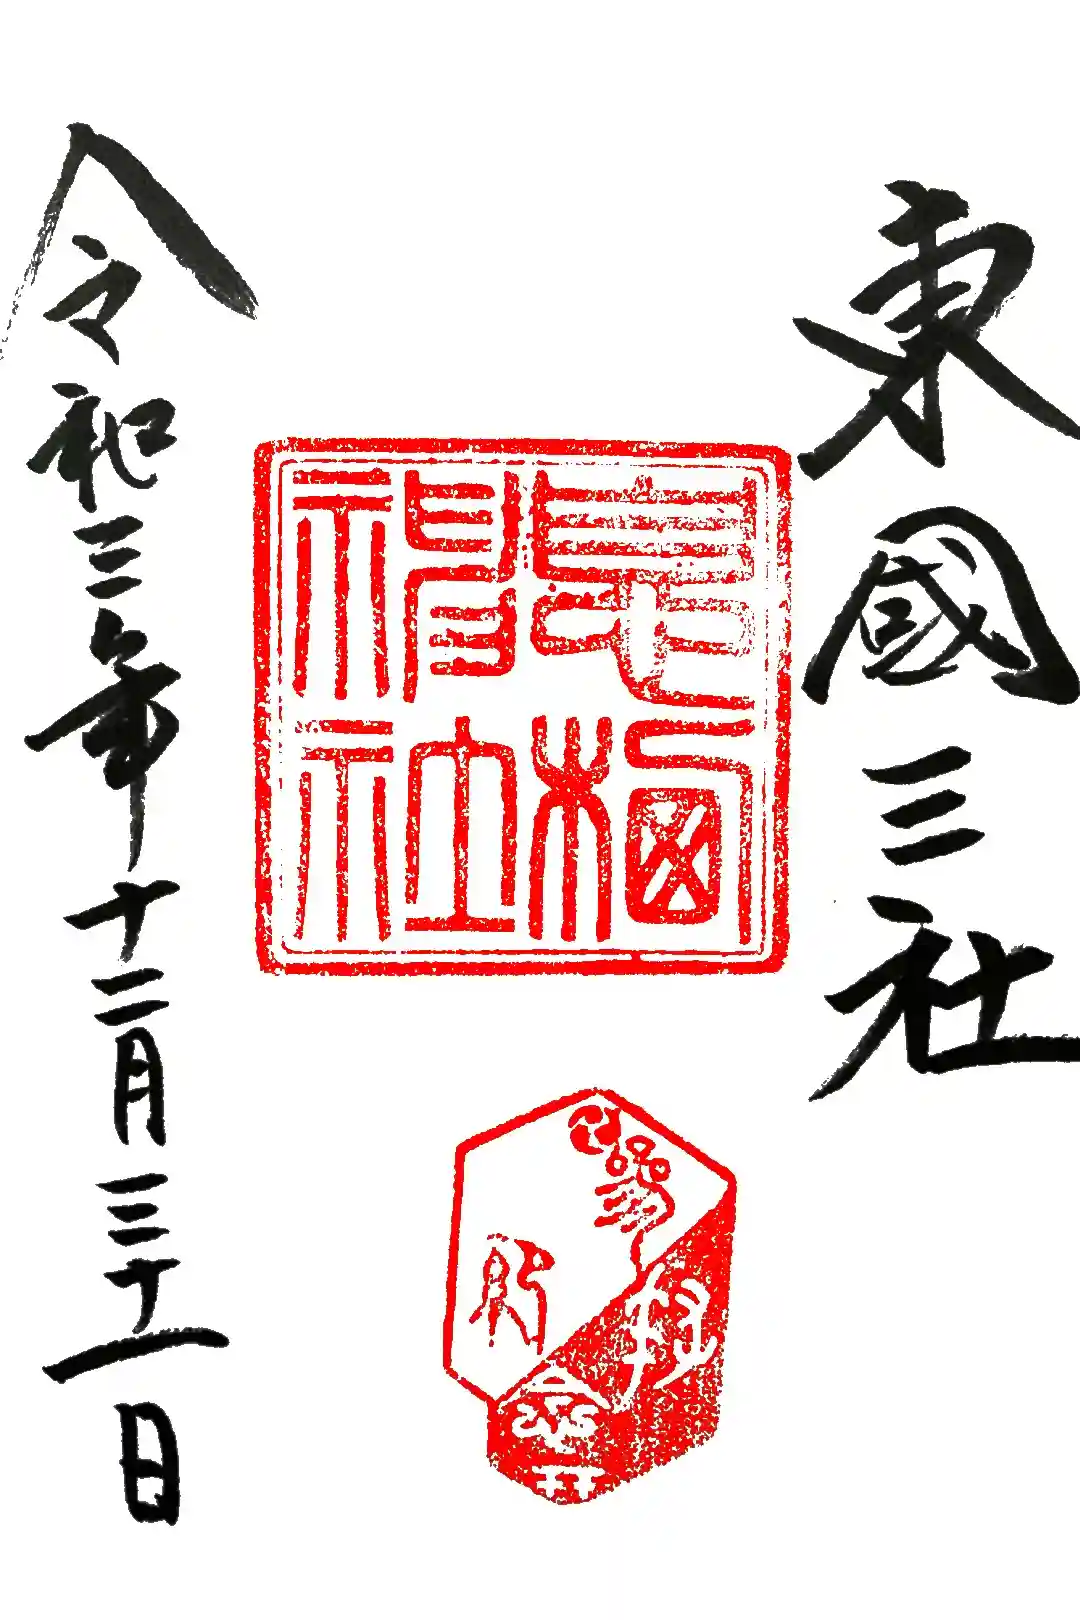 東國三社
息栖
神社
令和三年十二月三十一日